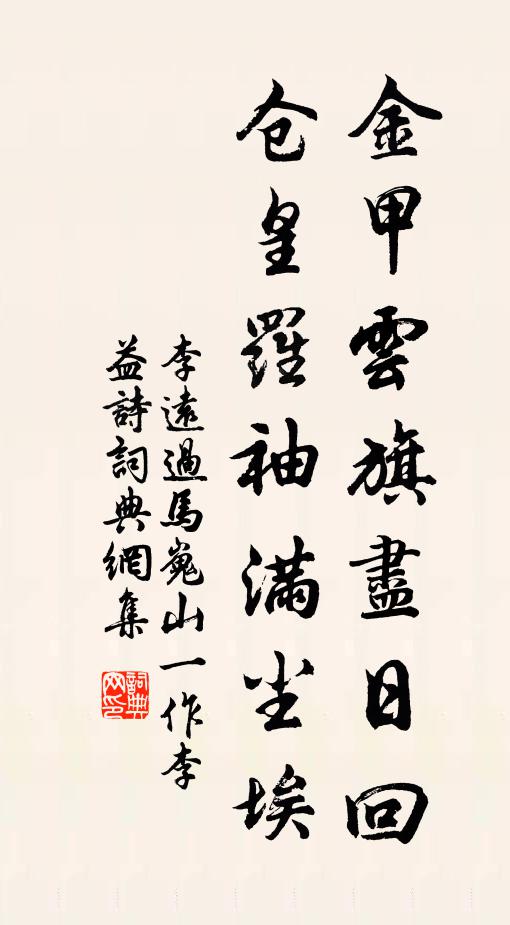 金甲雲旗盡日回
仓皇羅袖滿尘埃
李遠過馬嵬山一作李
益詩詞典網集
詞典
网印